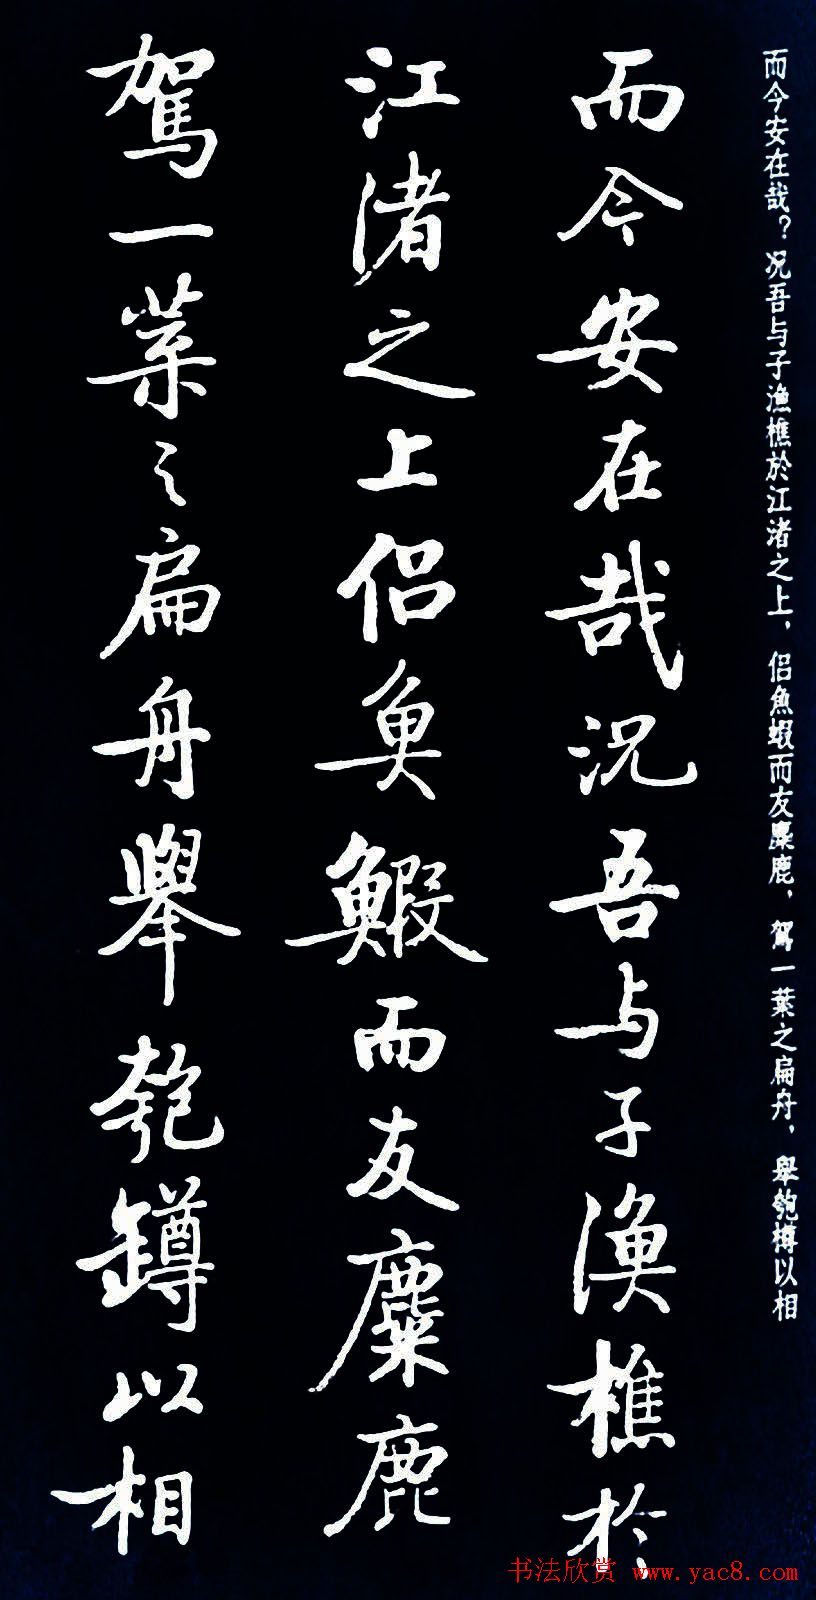 而今安在哉？况吾与子漁樵於江渚之上，侣魚蝦而友麋鹿，駕一葉之扁舟，舉匏樽以相
而今安在哉況吾与子漁樵於
江渚之上侣魚鰕而友麋鹿
駕一葉之扁舟舉匏罇以相
书法欣赏 www.yac8.com